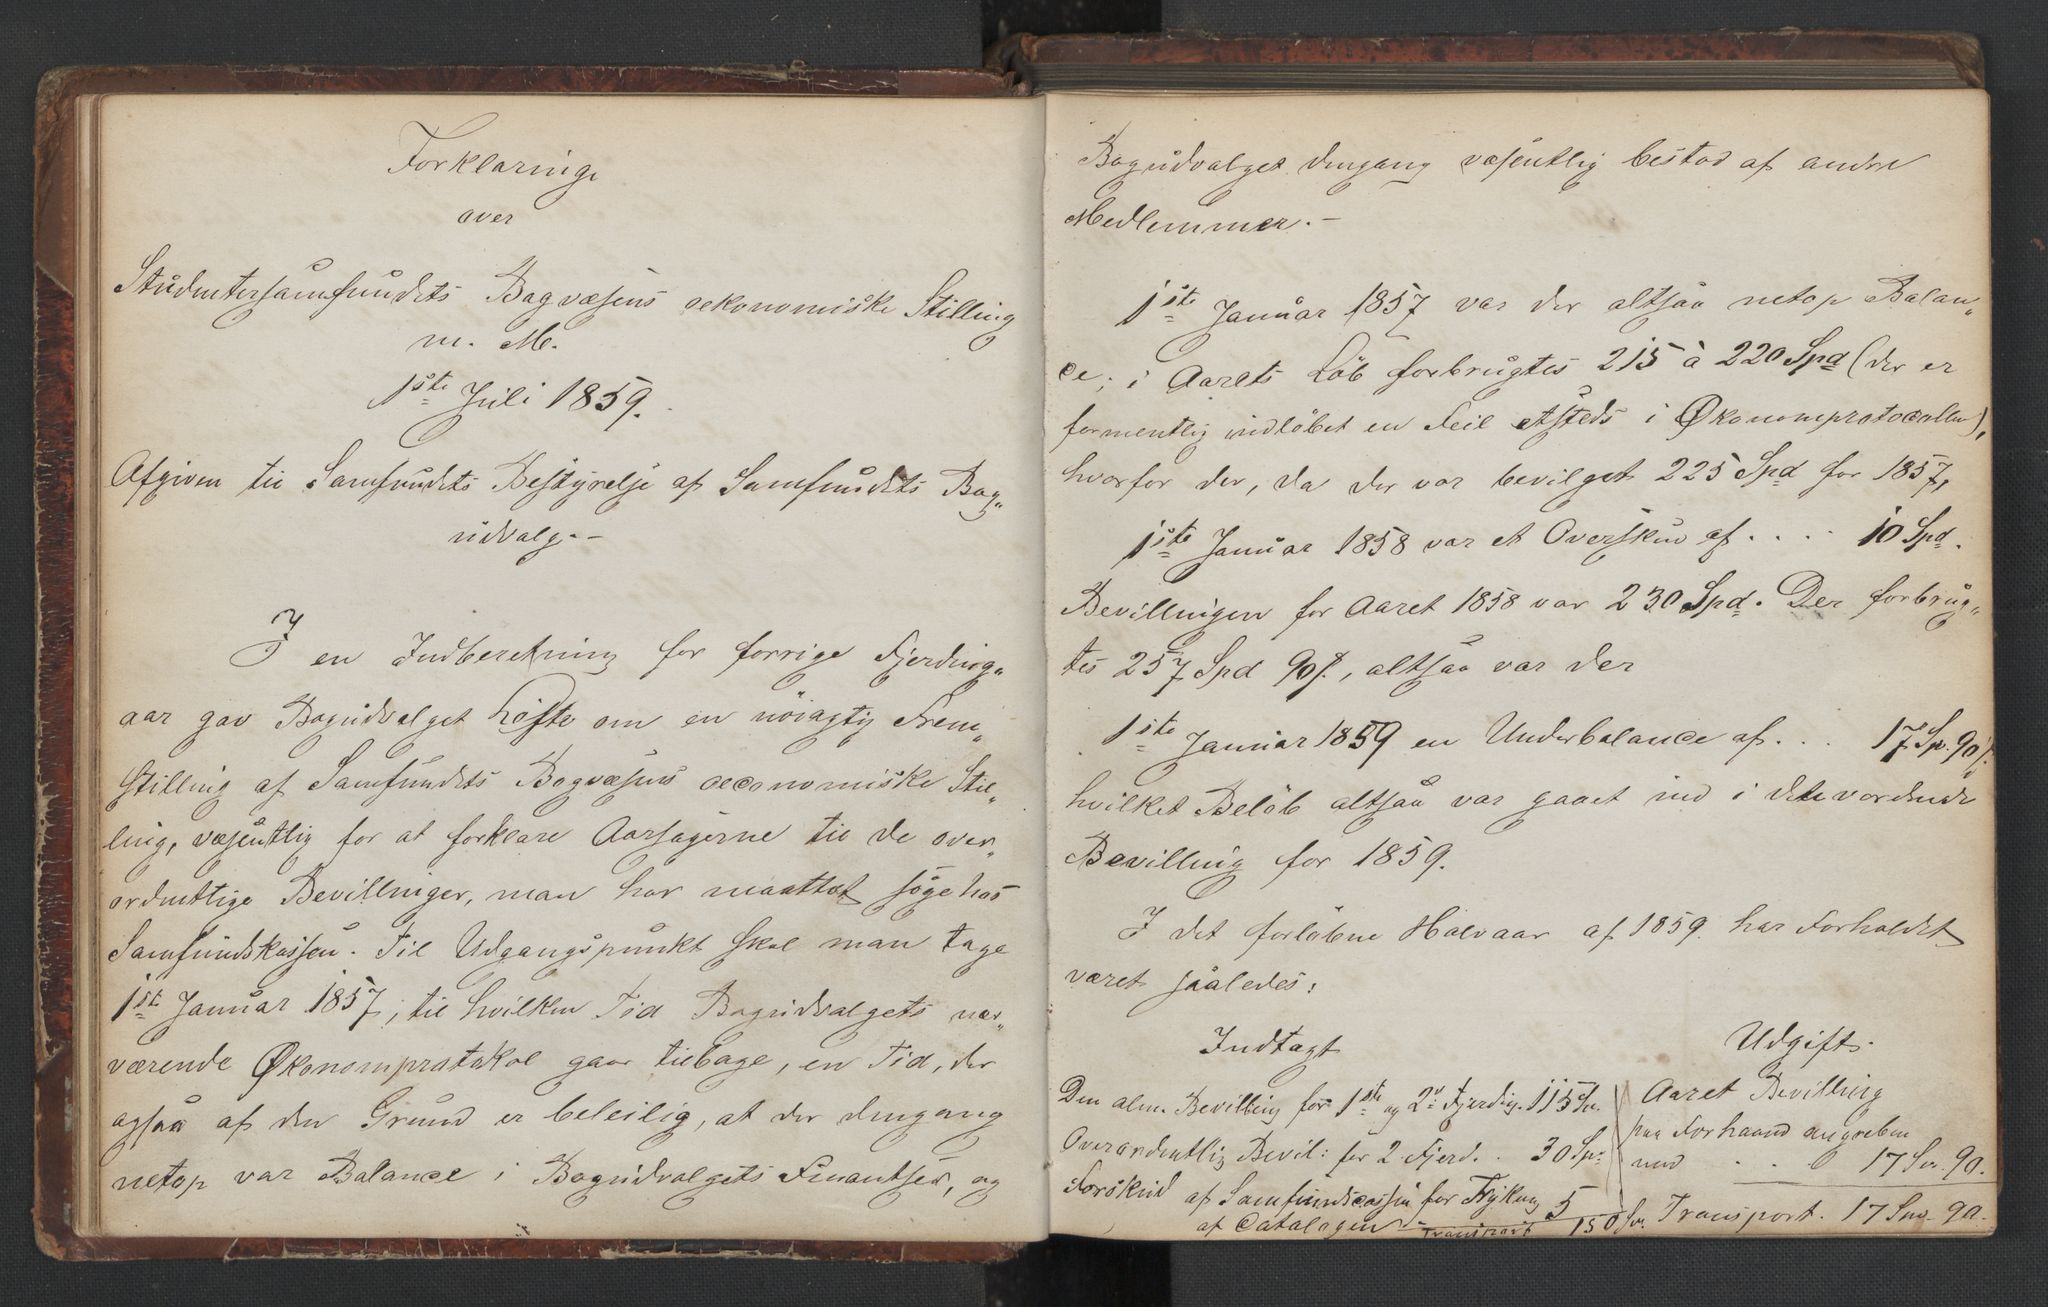 Forklaring
over
Studentersamfundets Bogvæsens oekonomiske Stilling
m. M.
1ste Juli 1859.
Afgiven til Samfundets Bestyrelse af Samfundets Bog„
udvalg.-
I en Indberetning for forrige Fjerding„
aar gav Bogudvalget Løfte om en nöiagtig Frem„
stilling af Samfundets Bogvæsens oeconomiske Stil„
ling, væsentlig for at forklare Aarsagerne til de over„
ordentlige Bevillninger, man har maattet søge hos
Samfundskassen. Til Udgangspunkt skal man tage
1ste Januar 1857, til hvilken Tid Bogudvalgets nær„
værende Økonomprotokol gaar tilbage, en Tid, der
ogsaa af den Grund er beleilig, at der dengang
netop var Balance i Bogudvalgets Finantser, og
Bogudvalget dengang væsentlig bestod af andre
Medlemmer.-
1ste Januar 1857 var der altsaa netop Balan„
ce; i Aarets Löb forbrugtes 215 à 220 Spd (der er
formentlig indlöbet en Feil etsteds i Økonomprotocollen),
hvorfor der, da der var bevilget 225 Spd for 1857,
1ste Januar 1858 var et Overskud af .... 10 Spd.
Bevillningen for Aaret 1858 var 230 Spd. Der forbrug„
tes 257 Spd 90 s, altsaa var der
1ste Januar 1859 en Underbalance af ... 17 Sp. 90 s.
hvilket Belöb altsaa var gaaet ind i det vordende
Bevilling for 1859.
I det forløbne Halvaar af 1859 har Forholdet
været saaledes:
Indtægt
Den alm. Bevilling for 1ste og 2d Fjerding. 115 Sp.
Overordentlig Bevil: for 2 Fjerd. . 30 Sp.
Forskud af Samfundscassen for Trykning 5
af Catalogen - Transport 150 Sp.
Udgift.
Aaret Bevilling
paa Forhaand angreben
med . . 17 Sp. 90.
Transport. 17 Sp. 90.